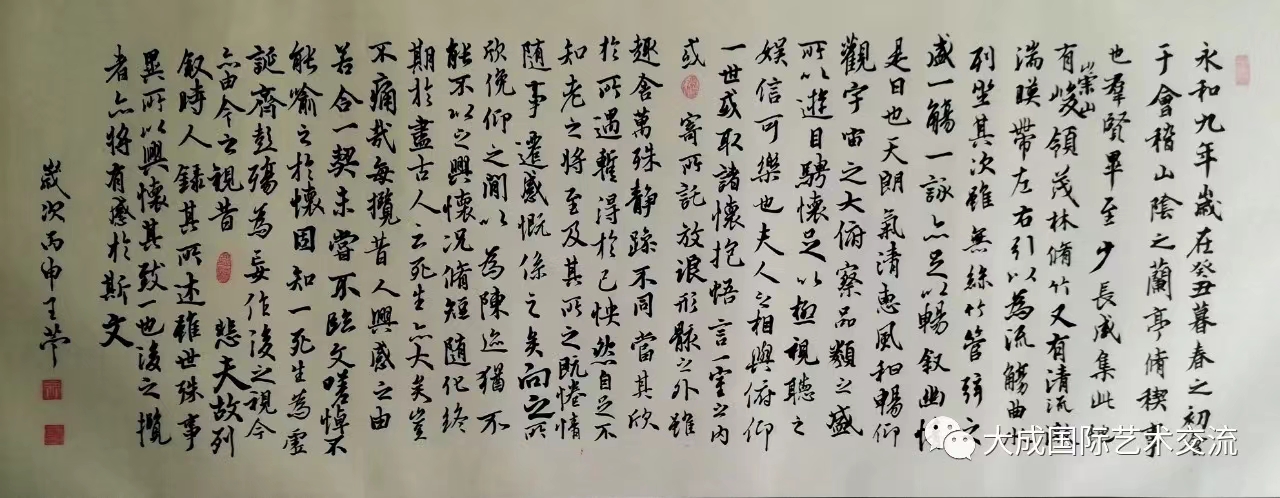 永和九年歲在癸丑暮春之初會
于會稽山陰之蘭亭脩稧事
也羣賢畢至少長咸集此地
有崇山峻領茂林脩竹又有清流激
湍暎帶左右引以為流觴曲水
列坐其次雖無絲竹管弦之
盛一觴一詠亦足以暢敘幽情
是日也天朗氣清惠風和暢仰
觀宇宙之大俯察品類之盛
所以遊目騁懷足以極視聽之
娛信可樂也夫人之相與俯仰
一世或取諸懷抱悟言一室之內
或寄所託放浪形骸之外雖
趣舍萬殊靜躁不同當其欣
於所遇暫得於己怏然自足不
知老之將至及其所之既惓情
隨事遷感慨係之矣向之所
欣俛仰之閒以為陳迹猶不
能不以之興懷況脩短隨化終
期於盡古人云死生亦大矣豈
不痛哉每攬昔人興感之由
若合一契未嘗不臨文嗟悼不
能喻之於懷固知一死生為虛
誕齊彭殤為妄作後之視今
亦由今之視昔悲夫故列
敘時人錄其所述雖世殊事
異所以興懷其致一也後之攬
者亦將有感於斯文
歲次丙申王
大成国际艺术交流